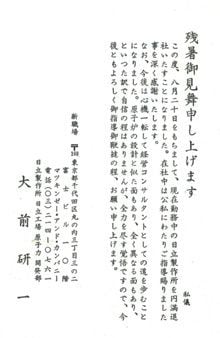 残暑御見舞申し上げます
私儀
この度、八月二十日をもちまして、現在勤務中の日立製作所を円満退
社いたすことになりました。在社中は公私にわたりご指導賜りました
事を深く感謝いたします。
なお、今後は心機一転して経営コンサルタントとしての道を歩むこと
になりました。原子炉の設計と似た面もあり、全く異なる面もあり、今
といった訳で自信の程はありませんが、全力を尽す覚悟ですので、今
後ともよろしく御指導御鞭撻の程、お願い申し上げます。
新職場
東京都千代田区丸の内三丁目三の二
富士ビル
マッキンゼー・アンド・カンパニー
電話(〇三)二一四-〇七六一
日立製作所 日立工場 原子力開発部
大前研一